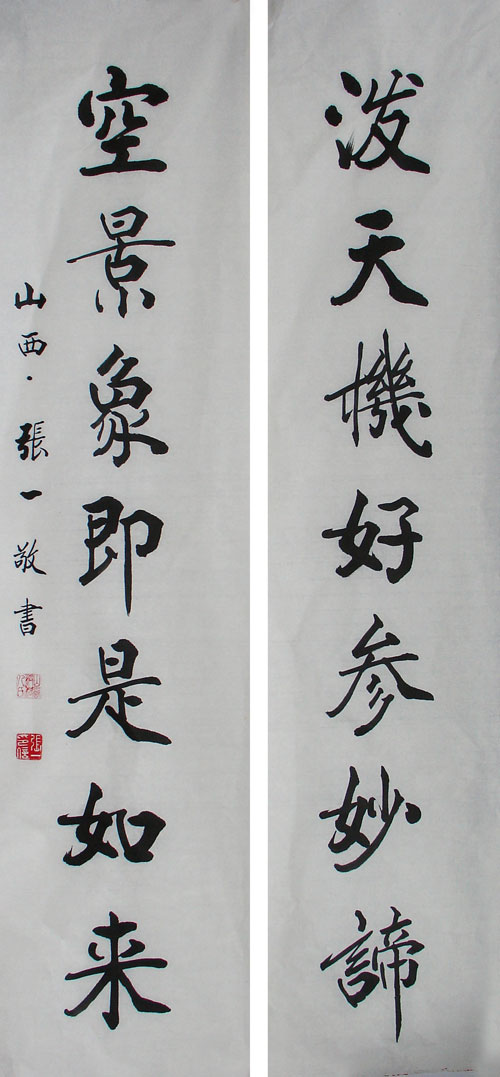 泼天機好参妙諦
空景象即是如来
山西·張一敬書